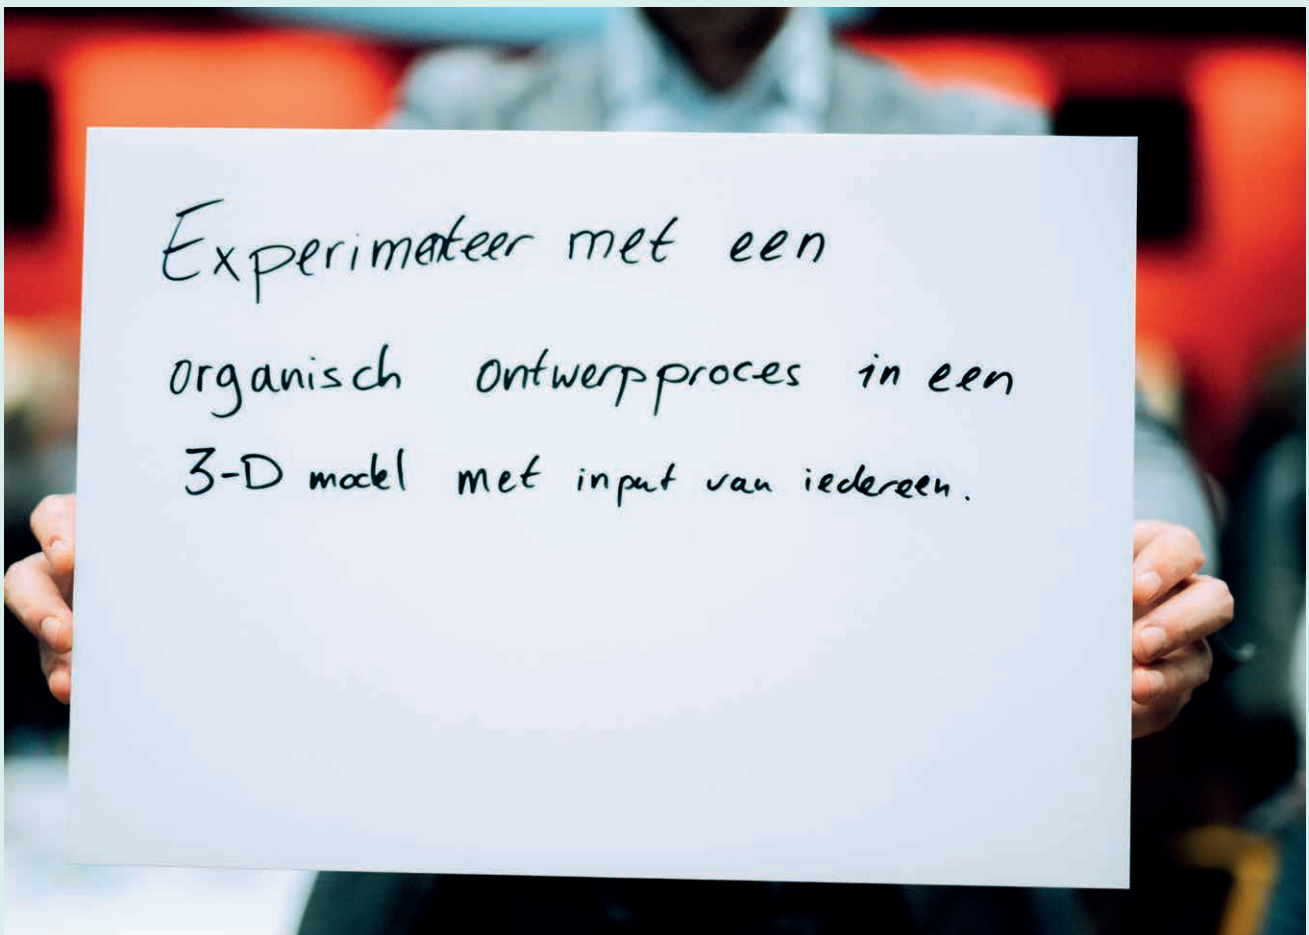 Experimenteer met een
organisch ontwerpproces in een
3-D model met input van iedereen.